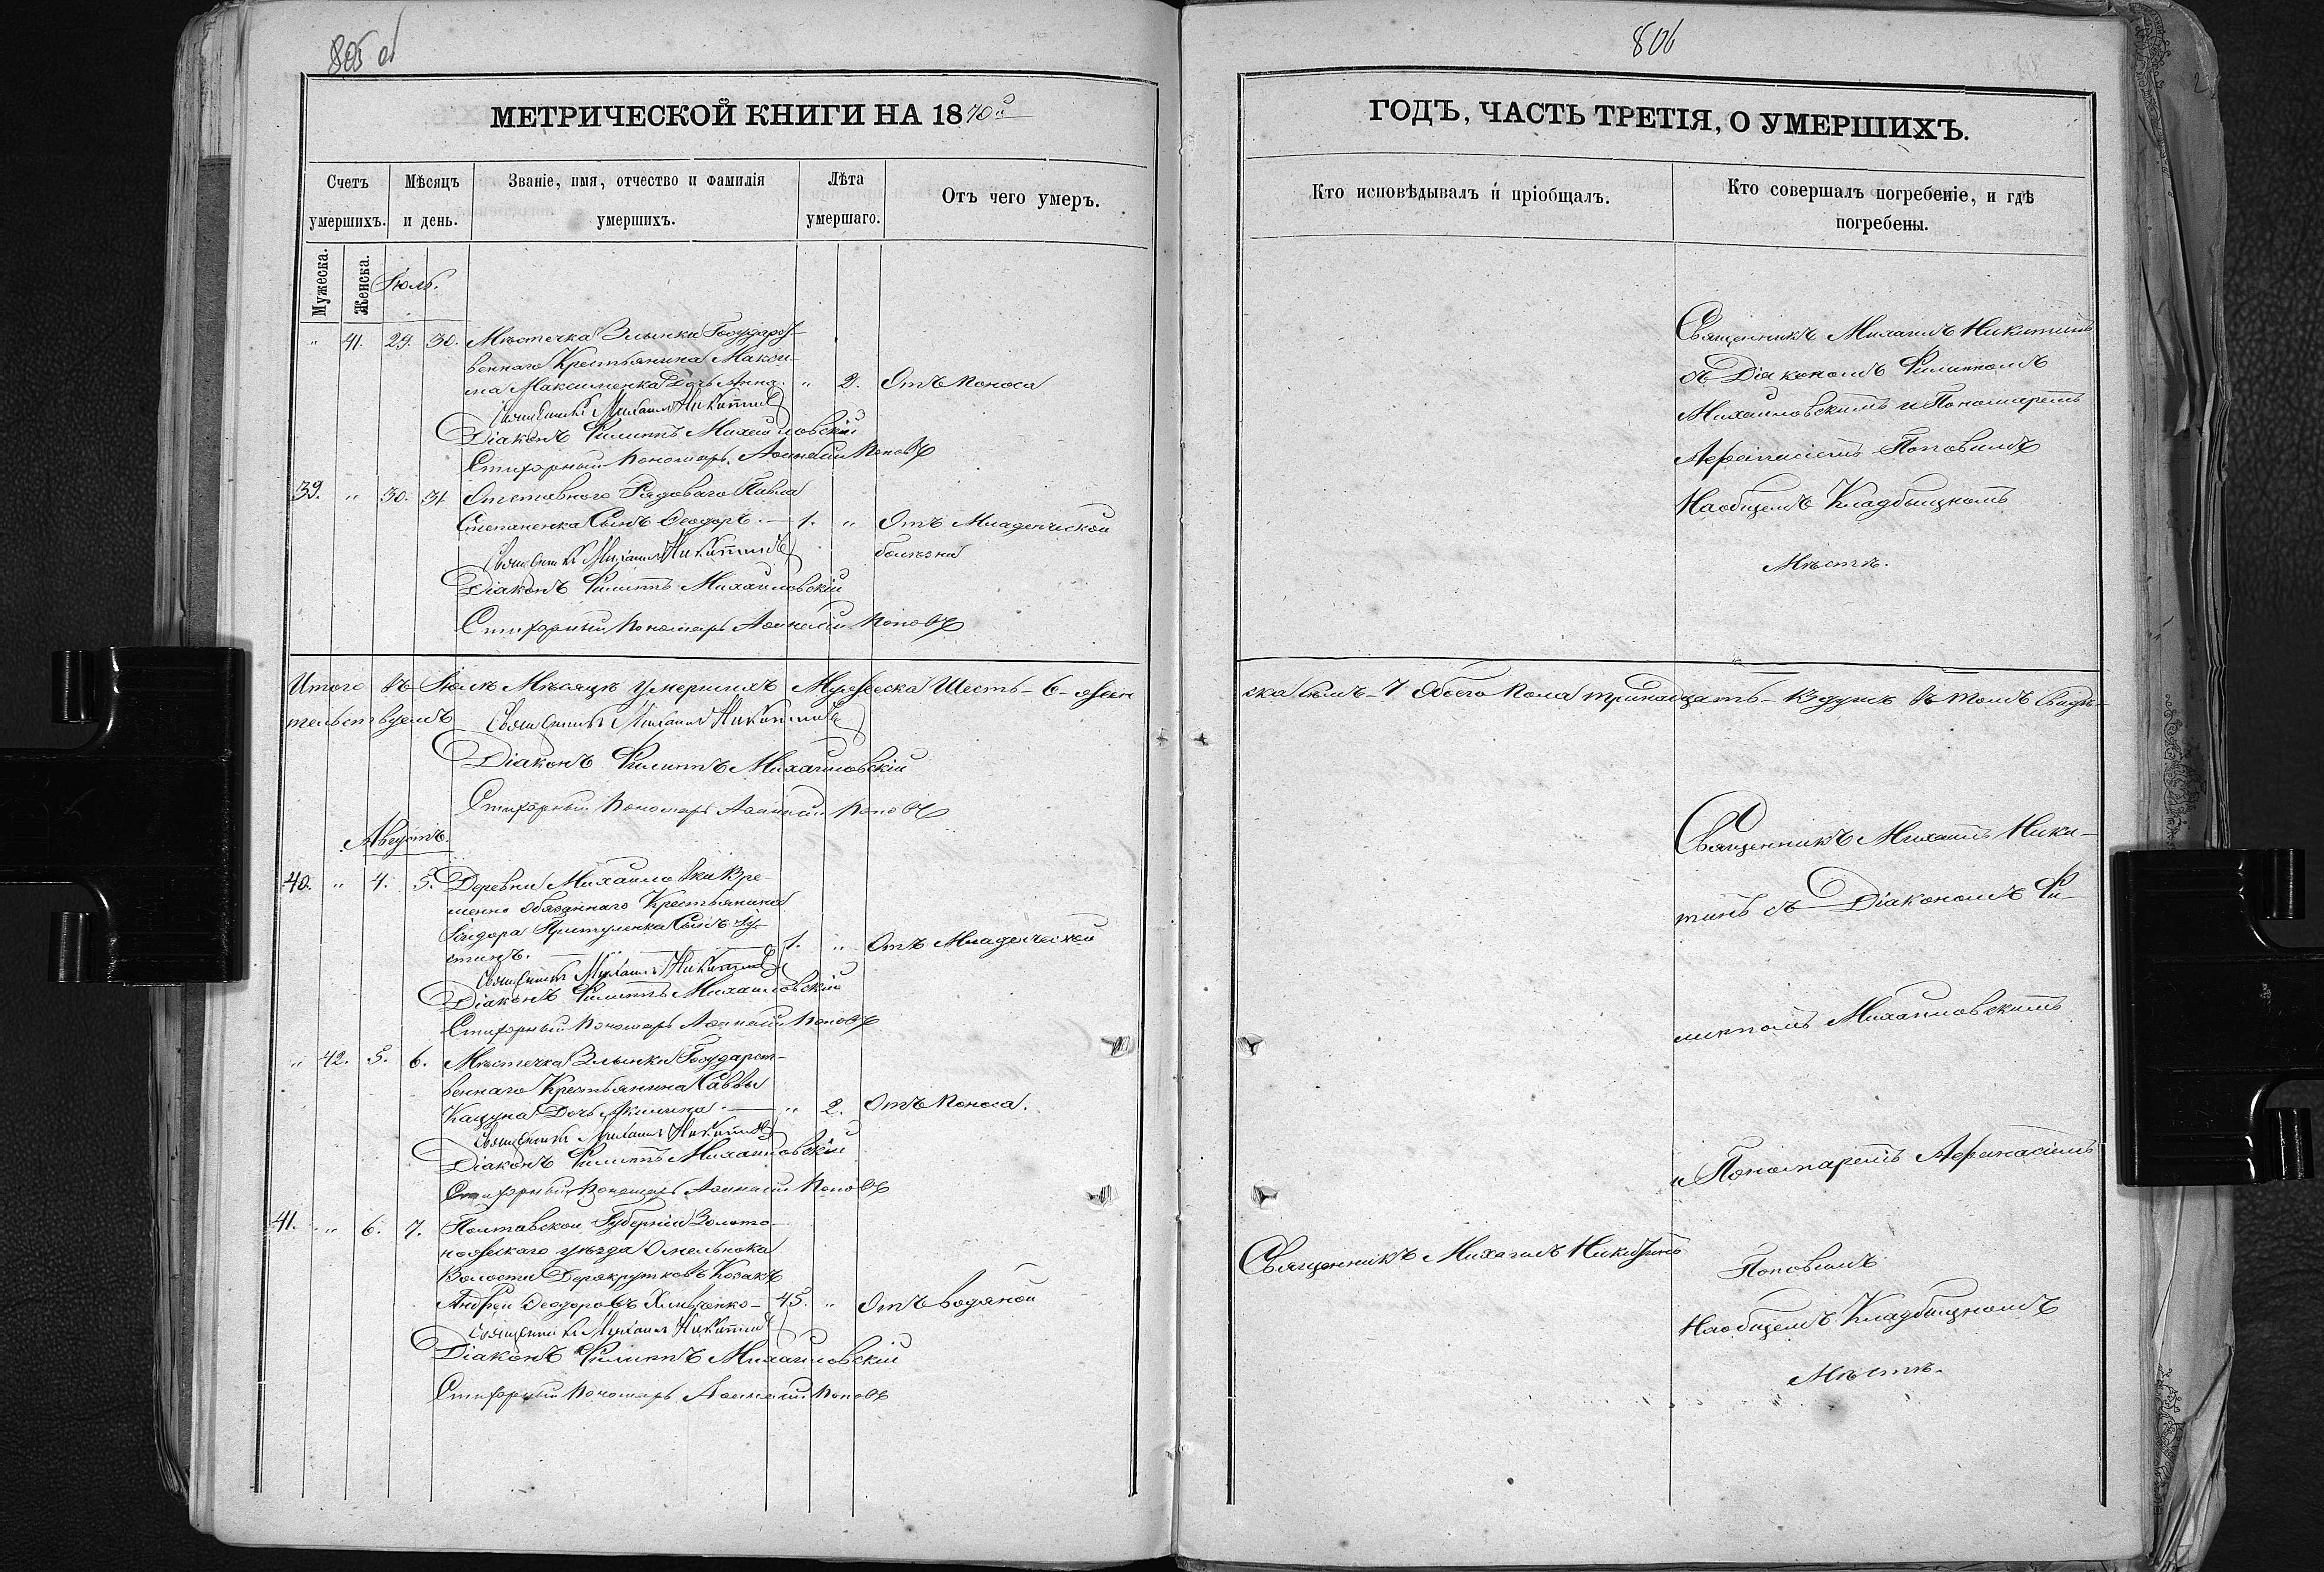 805 об
МЕТРИЧЕСКОЙ КНИГИ НА 1870й
Счетъ умершихъ.
Мѣсяцъ и день.
Званіе, имя, отчество и фамилія умершихъ.
Лѣта умершаго.
Отъ чего умеръ.
Мужеска.
Женска.
Іюль.
" 41. 29. 30. Мѣстечка Злынки Государст-
веннаго Крестьянина Макси-
ма Максименка Дочь Анна. " 2. Отъ поноса
Священникъ Михаилъ Никитинъ
Діаконъ Филиппъ Михайловскій
Стихарный Пономарь Афанасій Поповъ
39. " 30. 31 Отставного Рядоваго Павла
Степаненка Сынъ Ѳеодоръ. — 1. " Отъ Младенческой
болѣзни
Священникъ Михаилъ Никитинъ
Діаконъ Филиппъ Михайловскій
Стихарный Пономарь Афанасій Поповъ
Итого въ Іюлѣ Мѣсяцѣ умершихъ Мужеска Шесть - 6 - жен
тельствуемъ Священникъ Михаилъ Никитинъ
Діаконъ Филиппъ Михайловскій
Стихарный Пономарь Афанасій Поповъ
Августъ.
40. " 4. 5. Деревни Михайловки Вре-
менно обязаннаго Крестьянина
Сидора Сынъ Іу-
стинъ. — 1. " Отъ Младенческой
Священникъ Михаилъ Никитинъ
Діаконъ Филиппъ Михайловскій
Стихарный Пономарь Афанасій Поповъ
" 42. 5. 6. Мѣстечка Злынки Государст-
веннаго Крестьянина Саввы
Кацуна Дочь Акилина. — " 2. Отъ поноса.
Священникъ Михаилъ Никитинъ
Діаконъ Филиппъ Михайловскій
Стихарный Пономарь Афанасій Поповъ
41. " 6. 7. Полтавской Губерніи Золото-
ношскаго уѣзда
Волости Козакъ
Андрей Ѳеодоровъ — 45. " Отъ водяной
Священникъ Михаилъ Никитинъ
Діаконъ Филиппъ Михайловскій
Стихарный Пономарь Афанасій Поповъ
806
ГОДЪ, ЧАСТЬ ТРЕТІЯ, О УМЕРШИХЪ.
Кто исповѣдывалъ и пріобщалъ.
Кто совершалъ погребеніе, и гдѣ погребены.
Священникъ Михаилъ Никитинъ
съ Діакономъ Филиппомъ
Михайловскимъ и Пономаремъ
Афанасіемъ Поповымъ
На общемъ Кладбищномъ
Мѣстѣ.
ска семь - 7 обоего пола тринадцать - 13 душъ въ томъ Свидѣ-
Священникъ Михаилъ Ники-
тинъ съ Діакономъ Фи
липпомъ Михайловскимъ
и Пономаремъ Афанасіемъ
Священникъ Михаилъ Никитинъ
Поповымъ
На общемъ Кладбищномъ
Мѣстѣ.